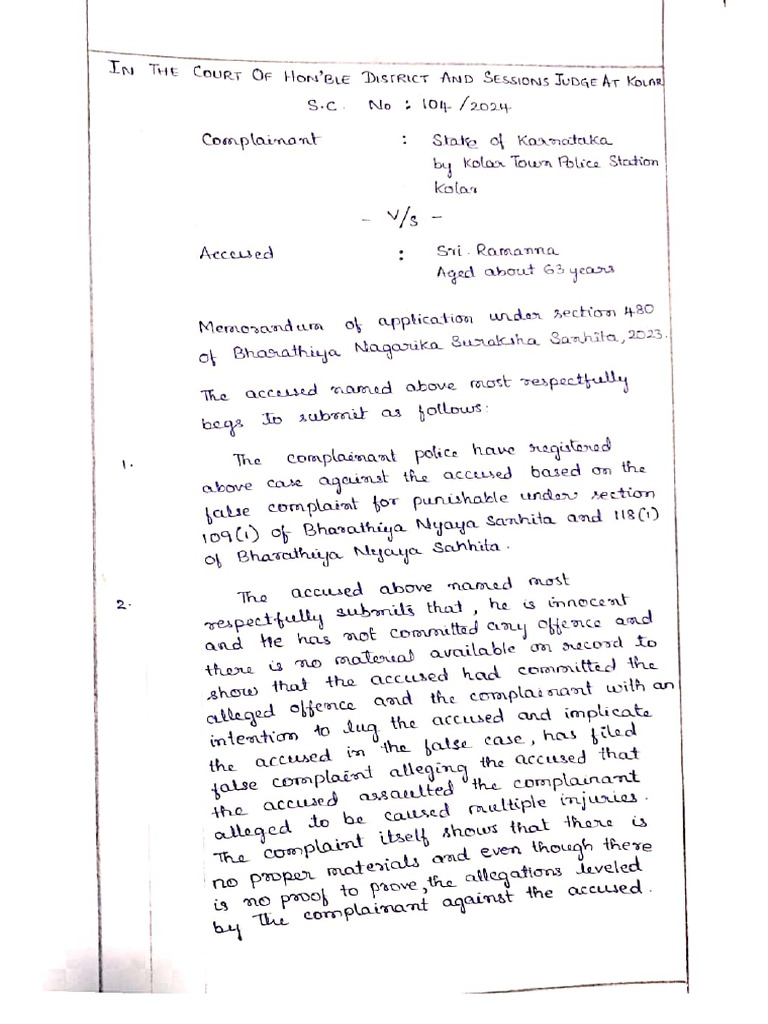 IN THE COURT OF HON'BLE DISTRICT AND SESSIONS JUDGE AT KOLAR
S.C. No : 104/2024
Complainant : State of Karnataka
by Kolar Town Police Station
Kolar
- V/s -
Accused : Sri. Ramanna
Aged about 63 years
Memorandum of application under section 480
of Bharathiya Nagarika Suraksha Sanhita, 2023.
The accused named above most respectfully
begs to submit as follows:
1. The complainant police have registered
above case against the accused based on the
false complaint for punishable under section
109(1) of Bharathiya Nyaya Sanhita and 118(1)
of Bharathiya Nyaya Sanhita.
2. The accused above named most
respectfully submits that, he is innocent
and He has not committed any offence and
there is no material available on record to
show that the accused had committed the
alleged offence and the complainant with an
intention to lug the accused and implicate
the accused in the false case, has filed
false complaint alleging the accused that
the accused assaulted the complainant
alleged to be caused multiple injuries.
The complaint itself shows that there is
no proper materials and even though there
is no proof to prove, the allegations leveled
by The complainant against the accused.